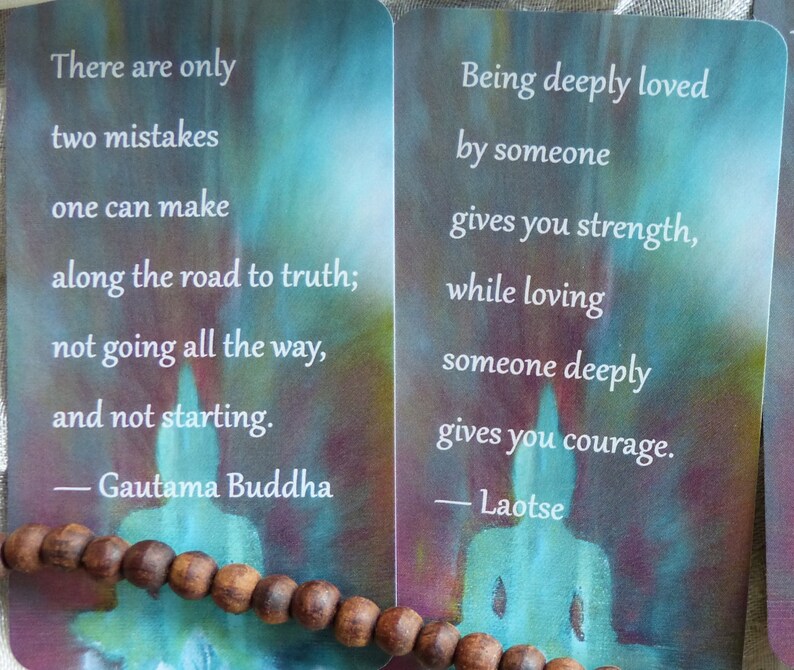 There are only
two mistakes
one can make
along the road to truth;
not going all the way,
and not starting.
— Gautama Buddha
Being deeply loved
by someone
gives you strength,
while loving
someone deeply
gives you courage.
— Laotse